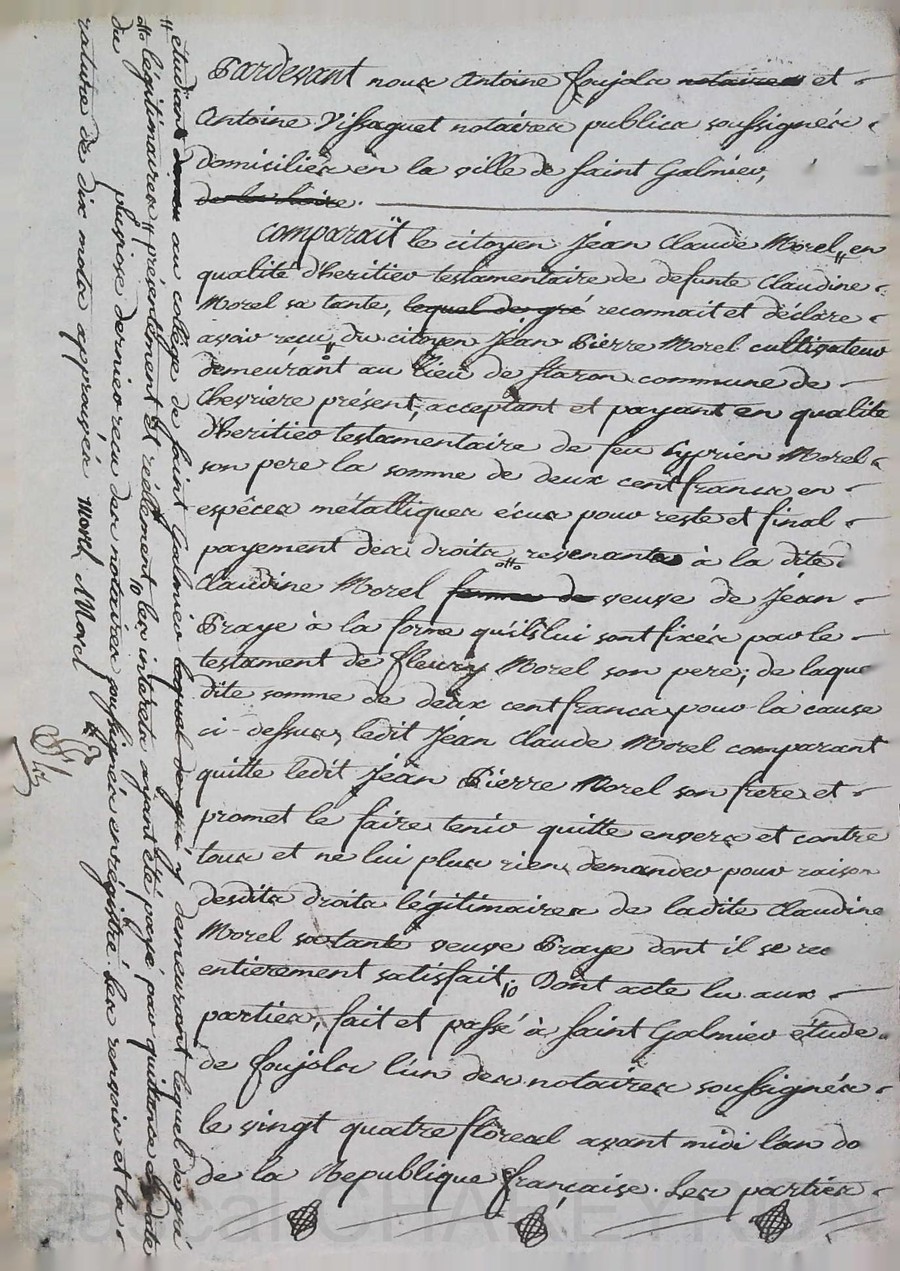 Pardevant nous Antoine Foujols notaires et
Antoine Vissaguet notaires publics soussignés
domiciliés en la ville de Saint Galmier,
de la Loire.
Comparaît le citoyen Jean Claude Morel, # en
qualité d'heritier testamentaire de defunte Claudine
Morel sa tante, lequel de gré reconnait et déclare
avoir reçu du citoyen Jean Pierre Morel cultivateur
demeurant au lieu de communé de
Chevriere présent, acceptant et payant en qualité
d'heritier testamentaire de feu Syprien Morel
son pere la somme de deux cent francs en
espéces métalliques écus pour reste et final
payement des droits revenants à la dite
Claudine Morel femme de veuve de Jean
Praye à la forme qu'ils lui sont fixés par le
testament de fleury Morel son pere; de laque
dite somme de deux cent francs pour la cause
ci-dessus, ledit Jean Claude Morel comparant
quitte ledit Jean Pierre Morel son frere et
promet le faire tenir quitte envers et contre
tous et ne lui plus rien demander pour raison
desdits droits légitimaires de ladite Claudine
Morel sa tante veuve Praye dont il se
entierement satisfait; Dont acte lu aux
parties, fait et passé à Saint Galmier étude
de Foujols l'un des notaires soussignés
le vingt quatre floreal avant midi l'an
de la Republique française. Les parties
# étudiant au collège de Saint Galmier lequel de gré demeurant lequel de gré
légitimaires présentement et réellement les interets ayant été payés par quittance
du pluviose dernier reçu des notaires soussignés enregistré. Les renvois et la
rature de dix mots approuvés Morel Morel
Pascal CHAREYRON